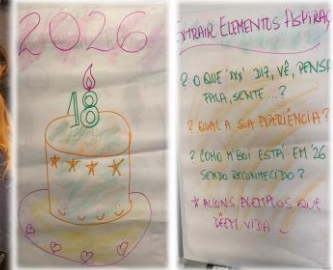 2026
18
EXTRAIR ELEMENTOS
? O QUE 'XXX' DIZ, VÊ, PENSA
FALA, SENTE...?
? QUAL A SUA EXPERIÊNCIA?
? COMO M'BOI ESTÁ EM '26
SENDO RECONHECIDO?
* ALGUNS EXEMPLOS QUE
DÊEM VIDA